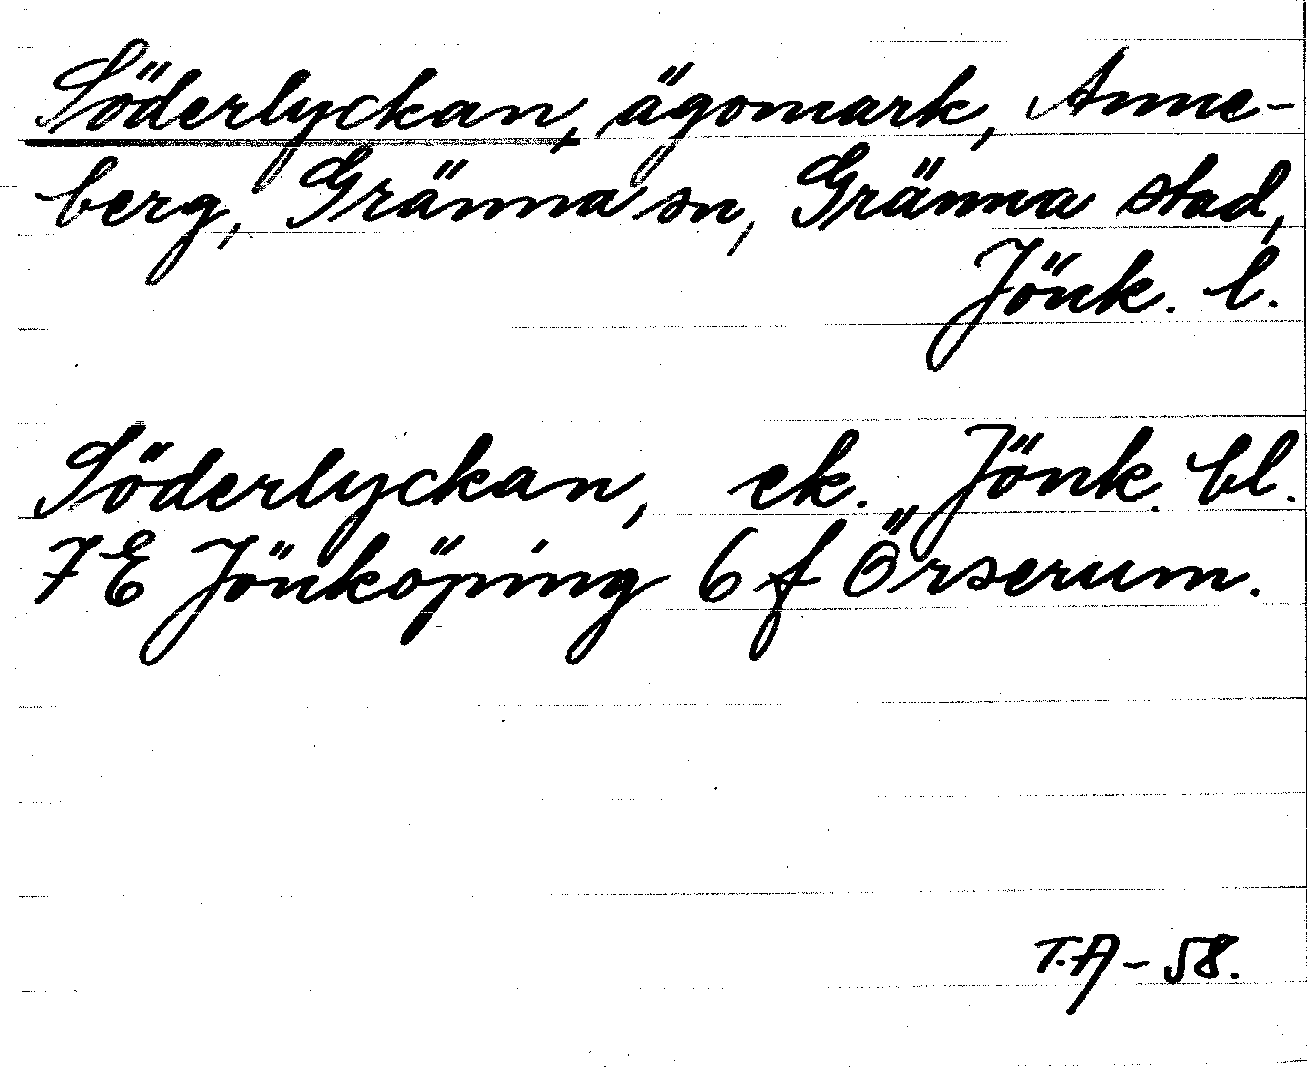 Söderlyckan, ägomark, Anne-
berg, Gränna sn, Gränna stad,
Jönk. l.
Söderlyckan, ek. Jönk. bl.
7E Jönköping 6 f Örserum.
T.A - 58.